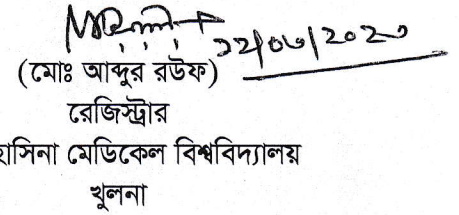 ২২/০৬/২০২৩
(মোঃ আব্দুর রউফ)
রেজিস্ট্রার
হাসিনা মেডিকেল বিশ্ববিদ্যালয়
খুলনা